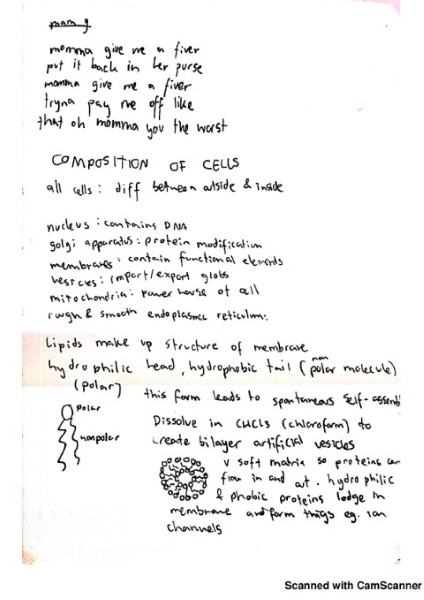 momma give me a fiver
put it back in her purse
momma give me a fiver
tryna pay me off like
that oh momma you the worst
COMPOSITION OF CELLS
all cells: diff between outside & inside
nucleus: contains DNA
golgi apparatus: protein modification
membranes: contain functional elements
vesicles: import/export globs
mitochondria: power house of cell
rough & smooth endoplasmic reticulum:
Lipids make up structure of membrane
hydrophilic head, hydrophobic tail (non polar molecule)
(polar)
this form leads to spontaneous self-assembl
polar
nonpolar
Dissolve in CHCl3 (chloroform) to
create bilayer artificial vesicles
v soft matrix so proteins can
flow in and out. hydrophilic
& phobic proteins lodge in
membrane and form things eg. ion
channels
Scanned with CamScanner